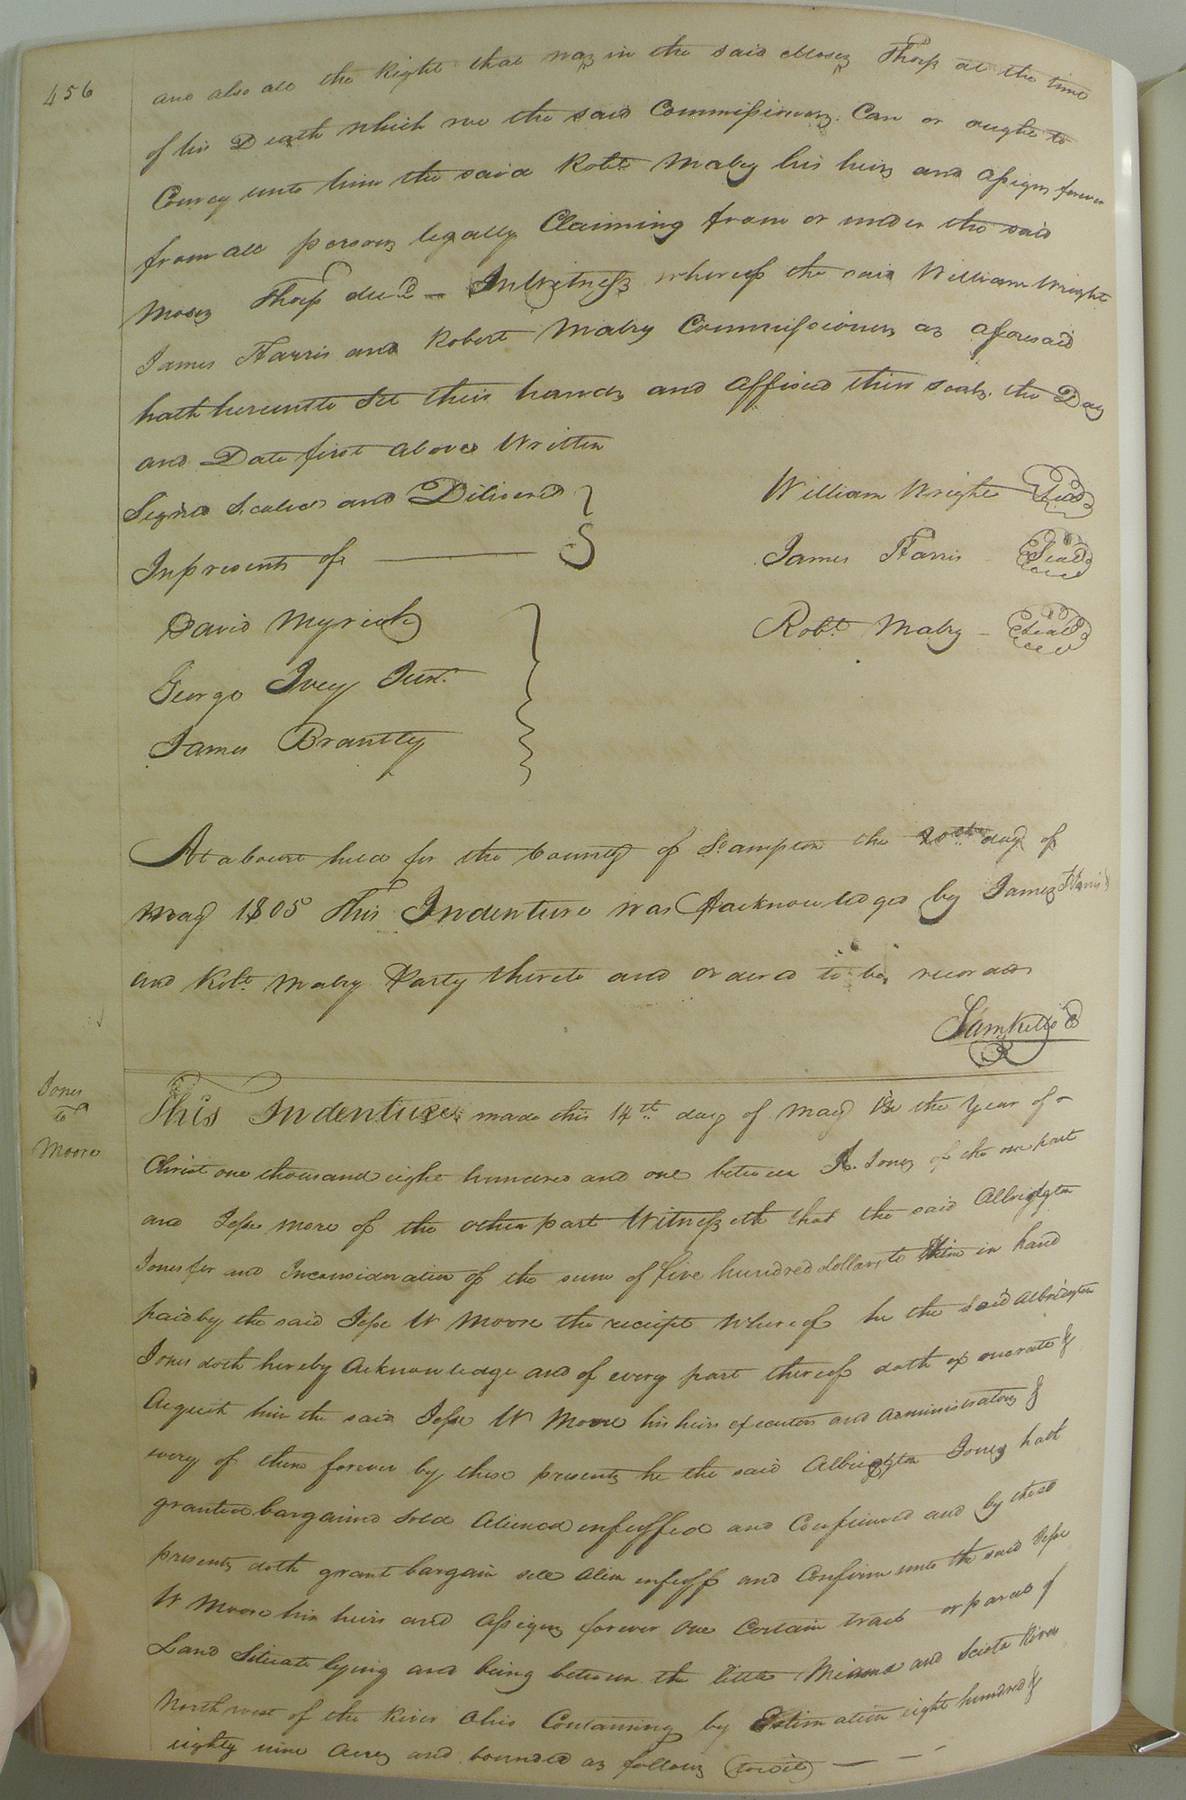 456
and also all the Right that was in the said Moses Thorp at the time
of his Death which we the said Commissioners Can or ought to
Convey unto him the said Robt. Mabry his heirs and assigns forever
from all persons legally Claiming from or under the said
Moses Thorp decd. In Witness whereof the said William Wright
James Harris and Robert Mabry Commissioners as aforesaid
hath hereunto Set their hands and affixed their seals the Day
and Date first above Written
Signed Sealed and Delivered
Inpresents of
William Wright Seal
James Harris Seal
Robt. Mabry Seal
David Myrick
George Ivey Junr.
James Brantley
At a Court held for the County of So.ampton the 20th day of
May 1805 This Indenture was Acknowledged by James Harris
and Robt. Mabry Party thereto and ordered to be recorded
Sam Kello C
Jones
to
Moore
This Indenture made this 14th day of May in the Year of
Christ one thousand eight hundred and one between A. Jones of the one part
and Jesse more of the other part Witnesseth that the said Albridgton
Jones for and Inconsideration of the sum of five hundred dollars to him in hand
paid by the said Jesse W Moore the receipt whereof he the said Albridgton
Jones doth hereby Acknowledge and of every part thereof doth exonerate &
Acquit him the said Jesse W Moore his heirs executors and administrators &
every of them forever by these presents he the said Albridgton Jones hath
granted bargained sold Aliened enfeoffed and Confirmed and by these
presents doth grant bargain sell alien enfeoff and Confirm unto the said Jesse
W Moore his heirs and assigns forever One Certain tract or parcel of
Land Situate lying and being between the little Miama and Sciota River
North west of the River Ohio Containing by Estimation eight hundred &
eighty nine Acres and bounded as follows (towit)